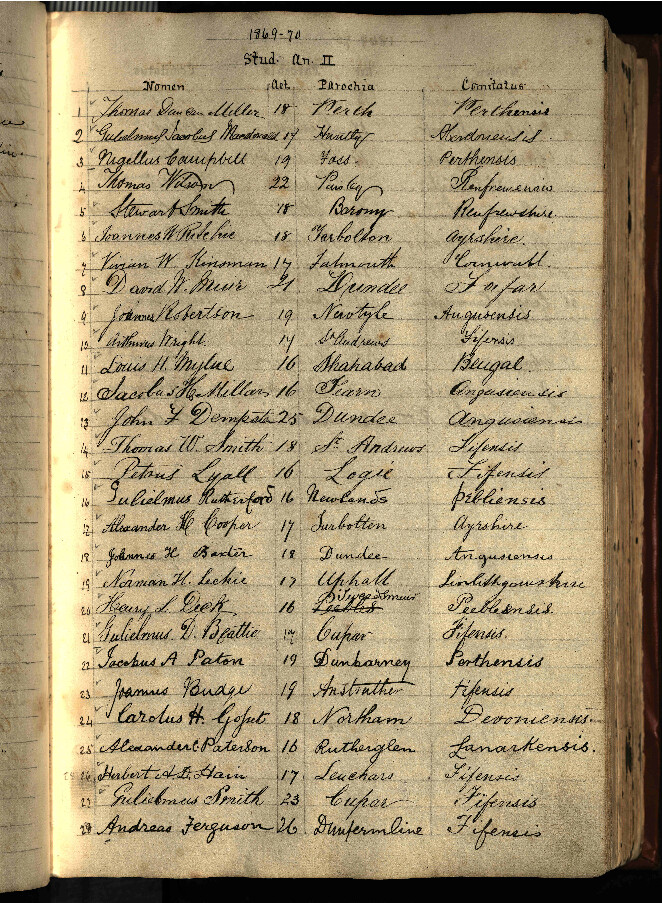 1869-70
Stud. An. II
Nomen Aet. Parochia Comitatus
1 Thomas Duncan Miller 18 Perth Perthensis
2 Gulielmus Jacobus Macdonald 17 Huntly Aberdonensis
3 Nigellus Campbell 19 Foss Perthensis
4 Thomas Wilson 22 Paisley Renfrewensis
5 Stewart Smith 18 Barony Renfrewshire
6 Joannes W. Ritchie 18 Tarbolton Ayrshire.
7 Vivian W. Kinsman 17 Falmouth Cornwall
8 David W. Muir 21 Dundee Forfar
9 Joannes Robertson 19 Newtyle Angusensis
10 Arthurus Wright. 17 St Andrews Fifensis
11 Louis H. Mylne 16 Shahabad Bengal.
12 Jacobus H. Millar 16 Fearn Angusiensis
13 John F Dempster 25 Dundee Angusiensis
14 Thomas W. Smith 18 St Andrews Fifensis
15 Petrus Lyall 16 Logie Fifensis
16 Gulielmus Rutherford 16 Newlands Peebliensis
17 Alexander H Cooper 17 Tarbolton Ayrshire
18 Joannes H Baxter 18 Dundee Angusiensis
19 Norman H. Leckie 17 Uphall Linlithgowshire
20 Henry L. Dick 16 Peebles Tweedsmuir Peeblensis
21 Gulielmus D. Beattie 17 Cupar Fifensis.
22 Jacobus A Paton 19 Dunbarney Perthensis
23 Joannes Budge 19 Anstruther Fifensis
24 Carolus H. 18 Northam Devoniensis.
25 Alexander C. Paterson 16 Rutherglen Lanarkensis.
26 Herbert A. D. Hain 17 Leuchars Fifensis
27 Gulielmus Smith 23 Cupar Fifensis
28 Andreas Ferguson 26 Dunfermline Fifensis